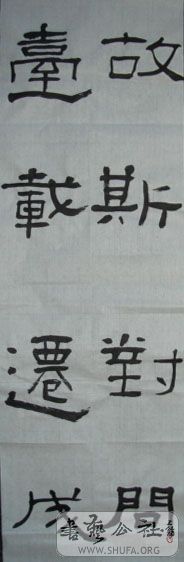 故斯對間
臺載遷成
書藝公社
WWW.SHUFA.ORG